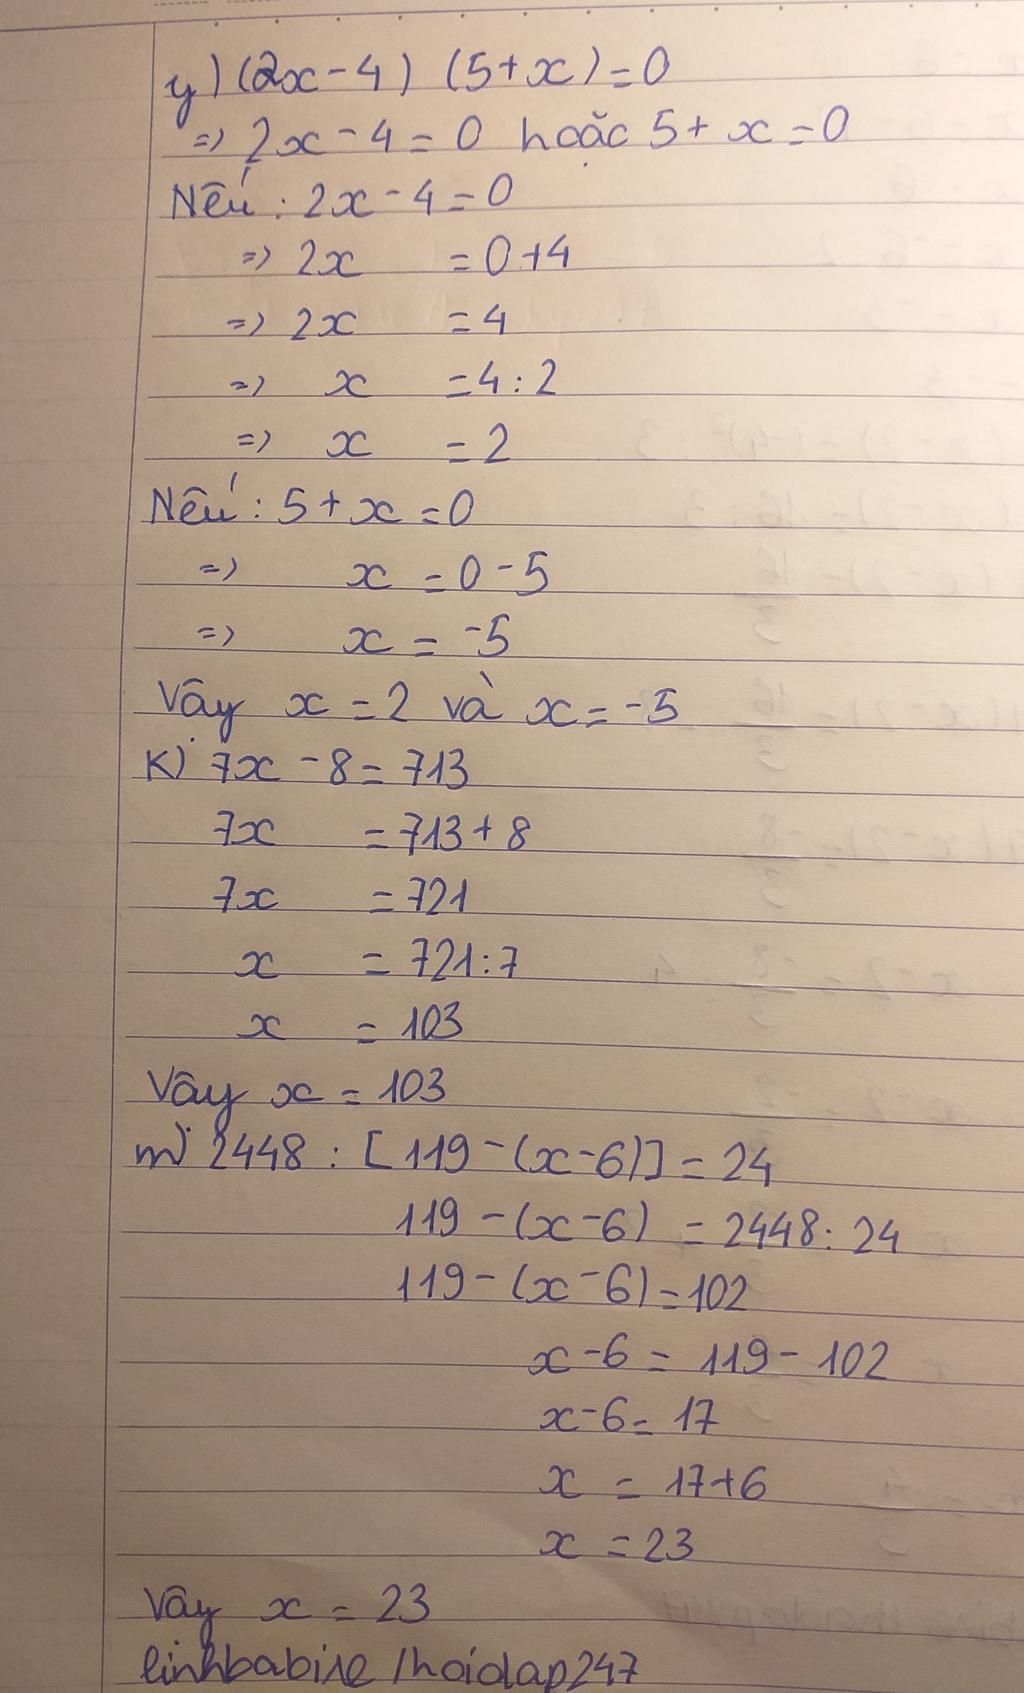 y) (2x - 4) (5 + x) = 0
=> 2x - 4 = 0 hoặc 5 + x = 0
Nếu : 2x - 4 = 0
=> 2x = 0 + 4
=> 2x = 4
=> x = 4 : 2
=> x = 2
Nếu : 5 + x = 0
=> x = 0 - 5
=> x = -5
Vậy x = 2 và x = -5
K) 7x - 8 = 713
7x = 713 + 8
7x = 721
x = 721 : 7
x = 103
Vậy x = 103
m) 2448 : [119 - (x - 6)] = 24
119 - (x - 6) = 2448 : 24
119 - (x - 6) = 102
x - 6 = 119 - 102
x - 6 = 17
x = 17 + 6
x = 23
Vậy x = 23
linhbabine /hoidap247